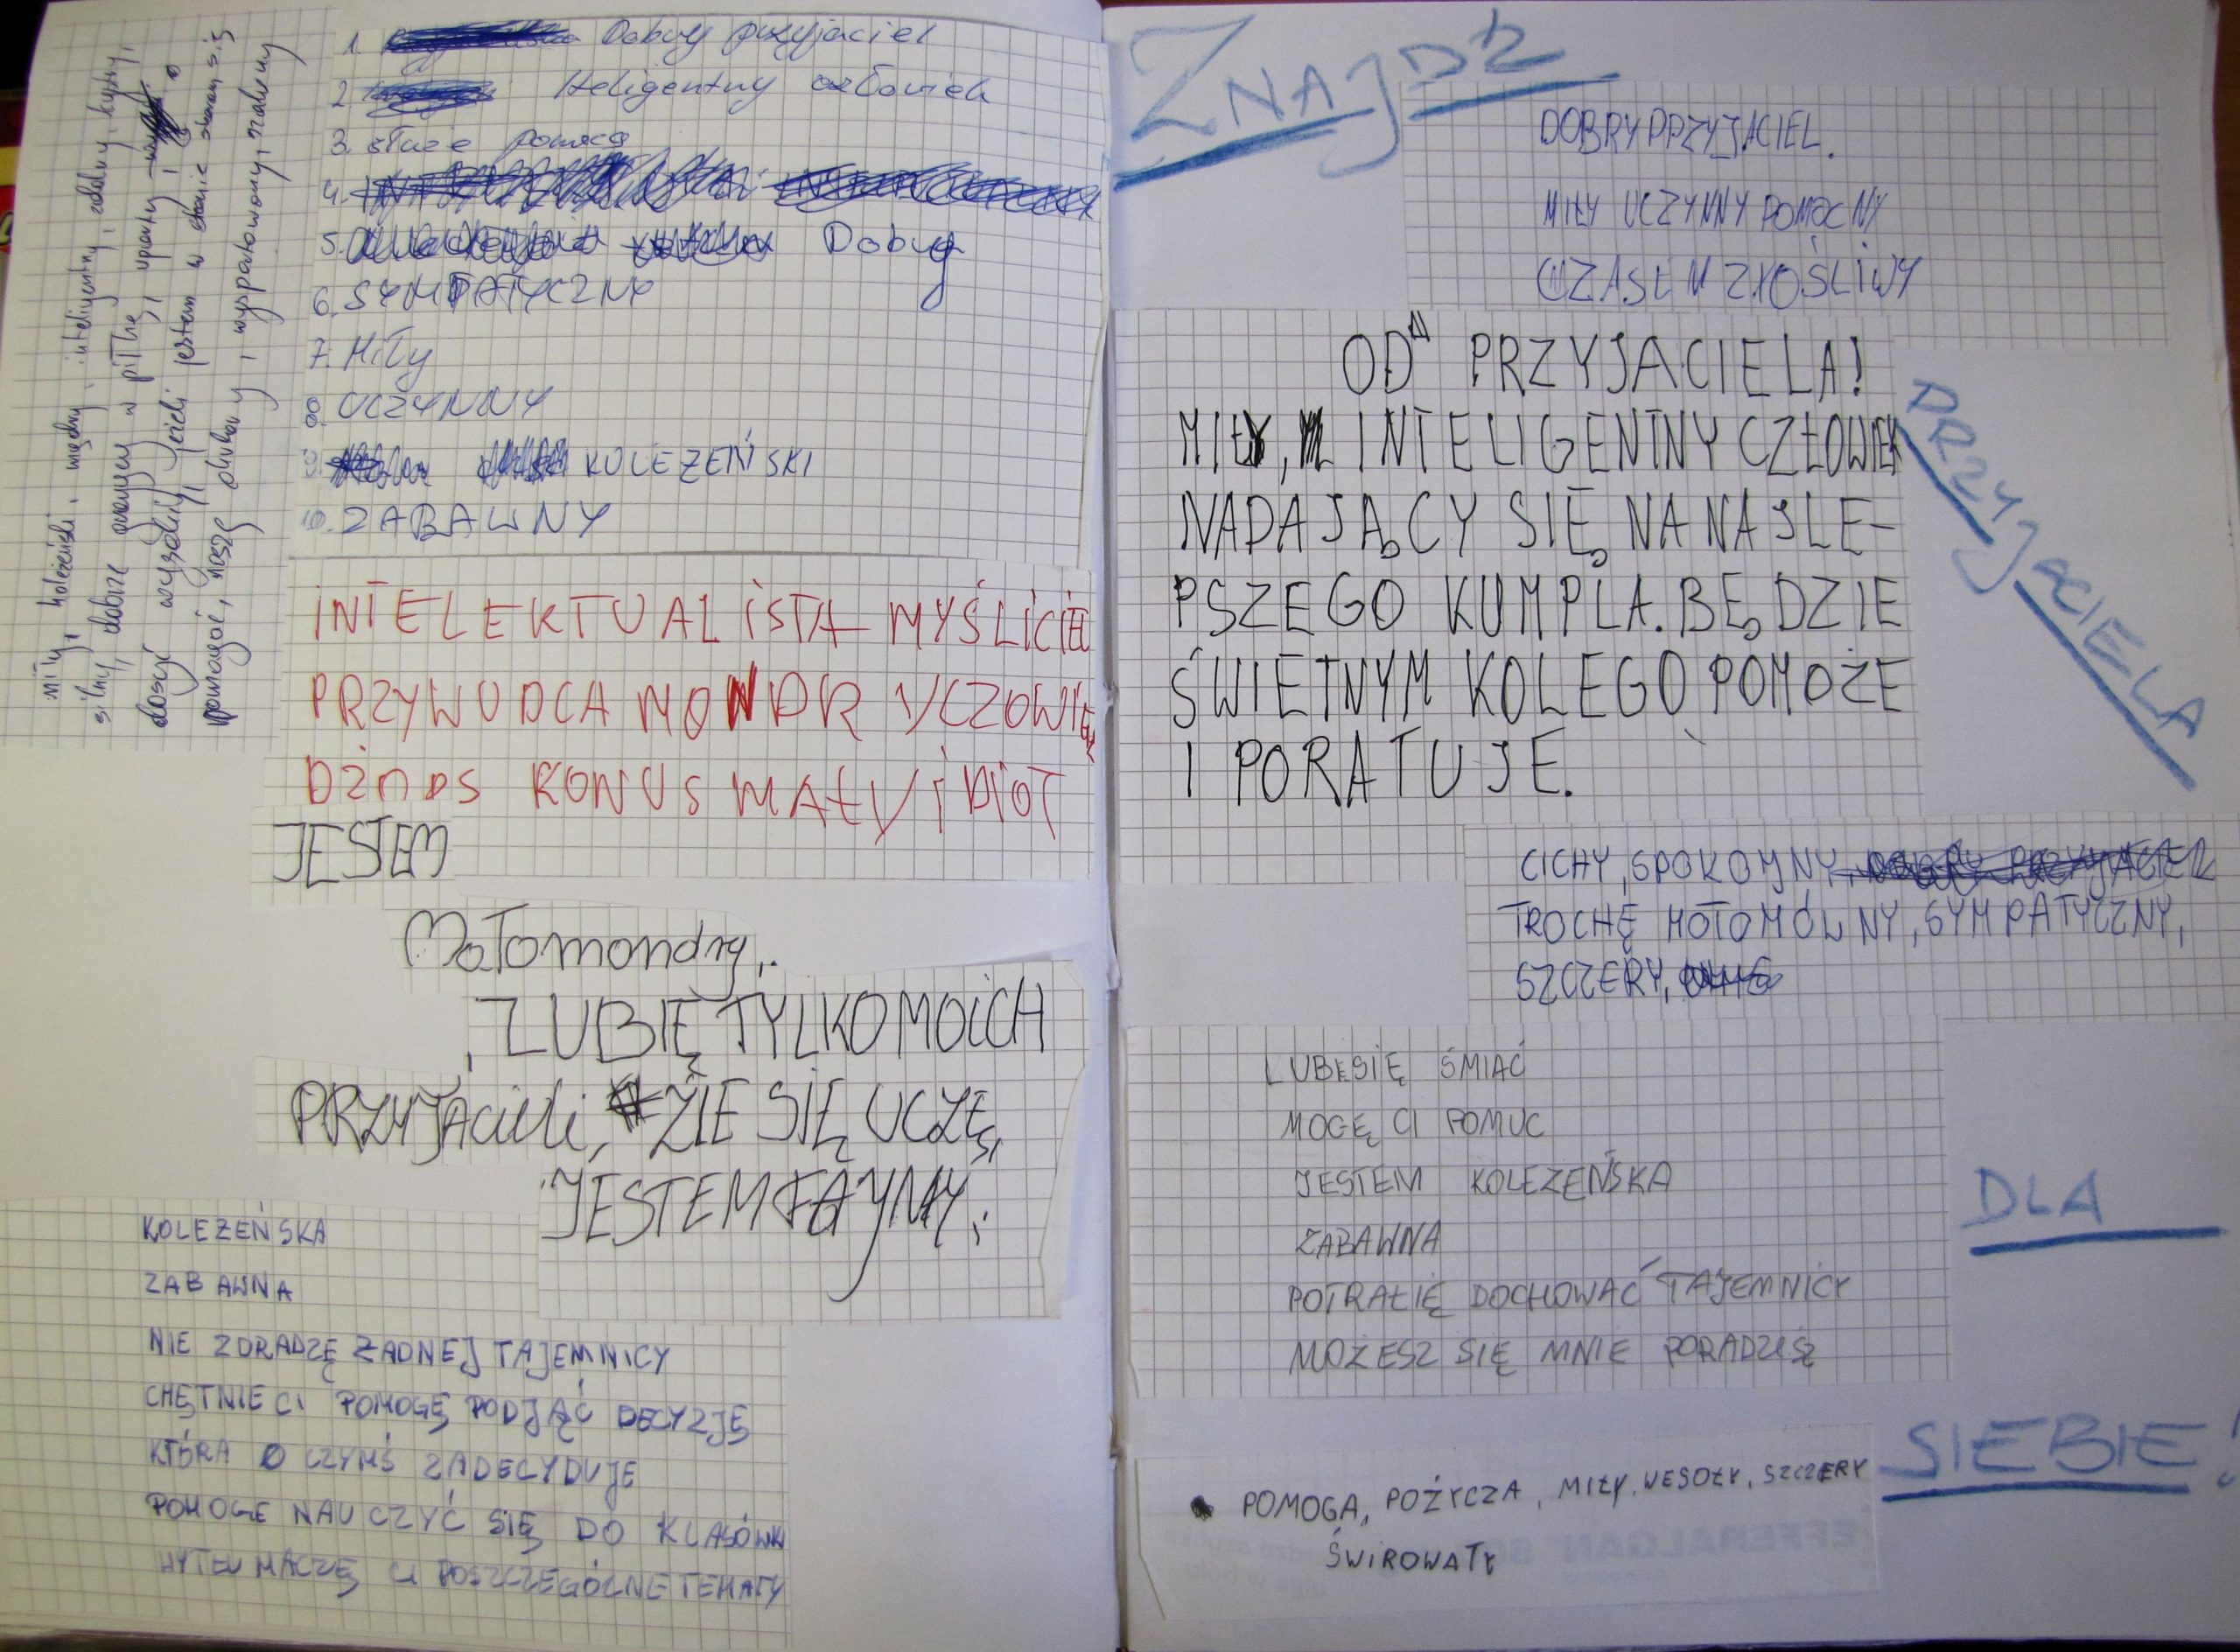 miły, koleżeński, mądry, inteligentny, zdolny, szybki,
silny, dobrze gram w piłkę, uparty,
dosyć wysoki, jeżeli jestem w stanie staram się
pomagać, noszę okulary, wysportowany, szalony
1. Dobry przyjaciel
2. Iteligentny człowiek
3. służe pomocą
4.
5. Dobry
6. SYMPATYCZNY
7. Miły
8. UCZYNNY
9. KOLEŻEŃSKI
10. ZABAWNY
INTELEKTUALISTA MYŚLICIEL
PRZYWUDCA
KONUS MAŁY IDIOT
JESTEM
Małomondry,
LUBIĘ TYLKO MOICH
PRZYJACIELI, ŹLE SIĘ UCZĘ,
JESTEM FAJNY,
KOLEŻEŃSKA
ZABAWNA
NIE ZDRADZĘ ŻADNEJ TAJEMNICY
CHĘTNIE CI POMOGĘ PODJĄĆ DECYZJĘ
KTÓRA O CZYMŚ ZADECYDUJE
POMOGE NAUCZYĆ SIĘ DO KLASÓWKI
WYTŁUMACZĘ CI POSZCZEGÓLNE TEMATY
ZNAJDŹ
DOBRY PPZYJACIEL.
MIŁY UCZYNNY POMOCNY
CZASEM ZŁOŚLIWY
OD PRZYJACIELA!
MIŁY, INTELIGENTNY CZŁOWIEK
NADAJĄCY SIĘ NA NAJLE-
PSZEGO KUMPLA. BĘDZIE
ŚWIETNYM KOLEGO POMOŻE
I PORATUJE.
PRZYJACIELA
CICHY, SPOKOJNY, DOBRY PRZYJACIEL
TROCHĘ MOŁOMÓWNY, SYMPATYCZNY,
SZCZERY,
LUBĘ SIĘ ŚMIAĆ
MOGĘ CI POMUC
JESTEM KOLEŻEŃSKA
ZABAWNA
POTRAFIĘ DOCHOWAĆ TAJEMNICY
MOŻESZ SIĘ MNIE
DLA
SIEBIE!
POMOGA, POŻYCZA, MIŁY, WESOŁY, SZCZERY
ŚWIROWATY
EFFERALGAN